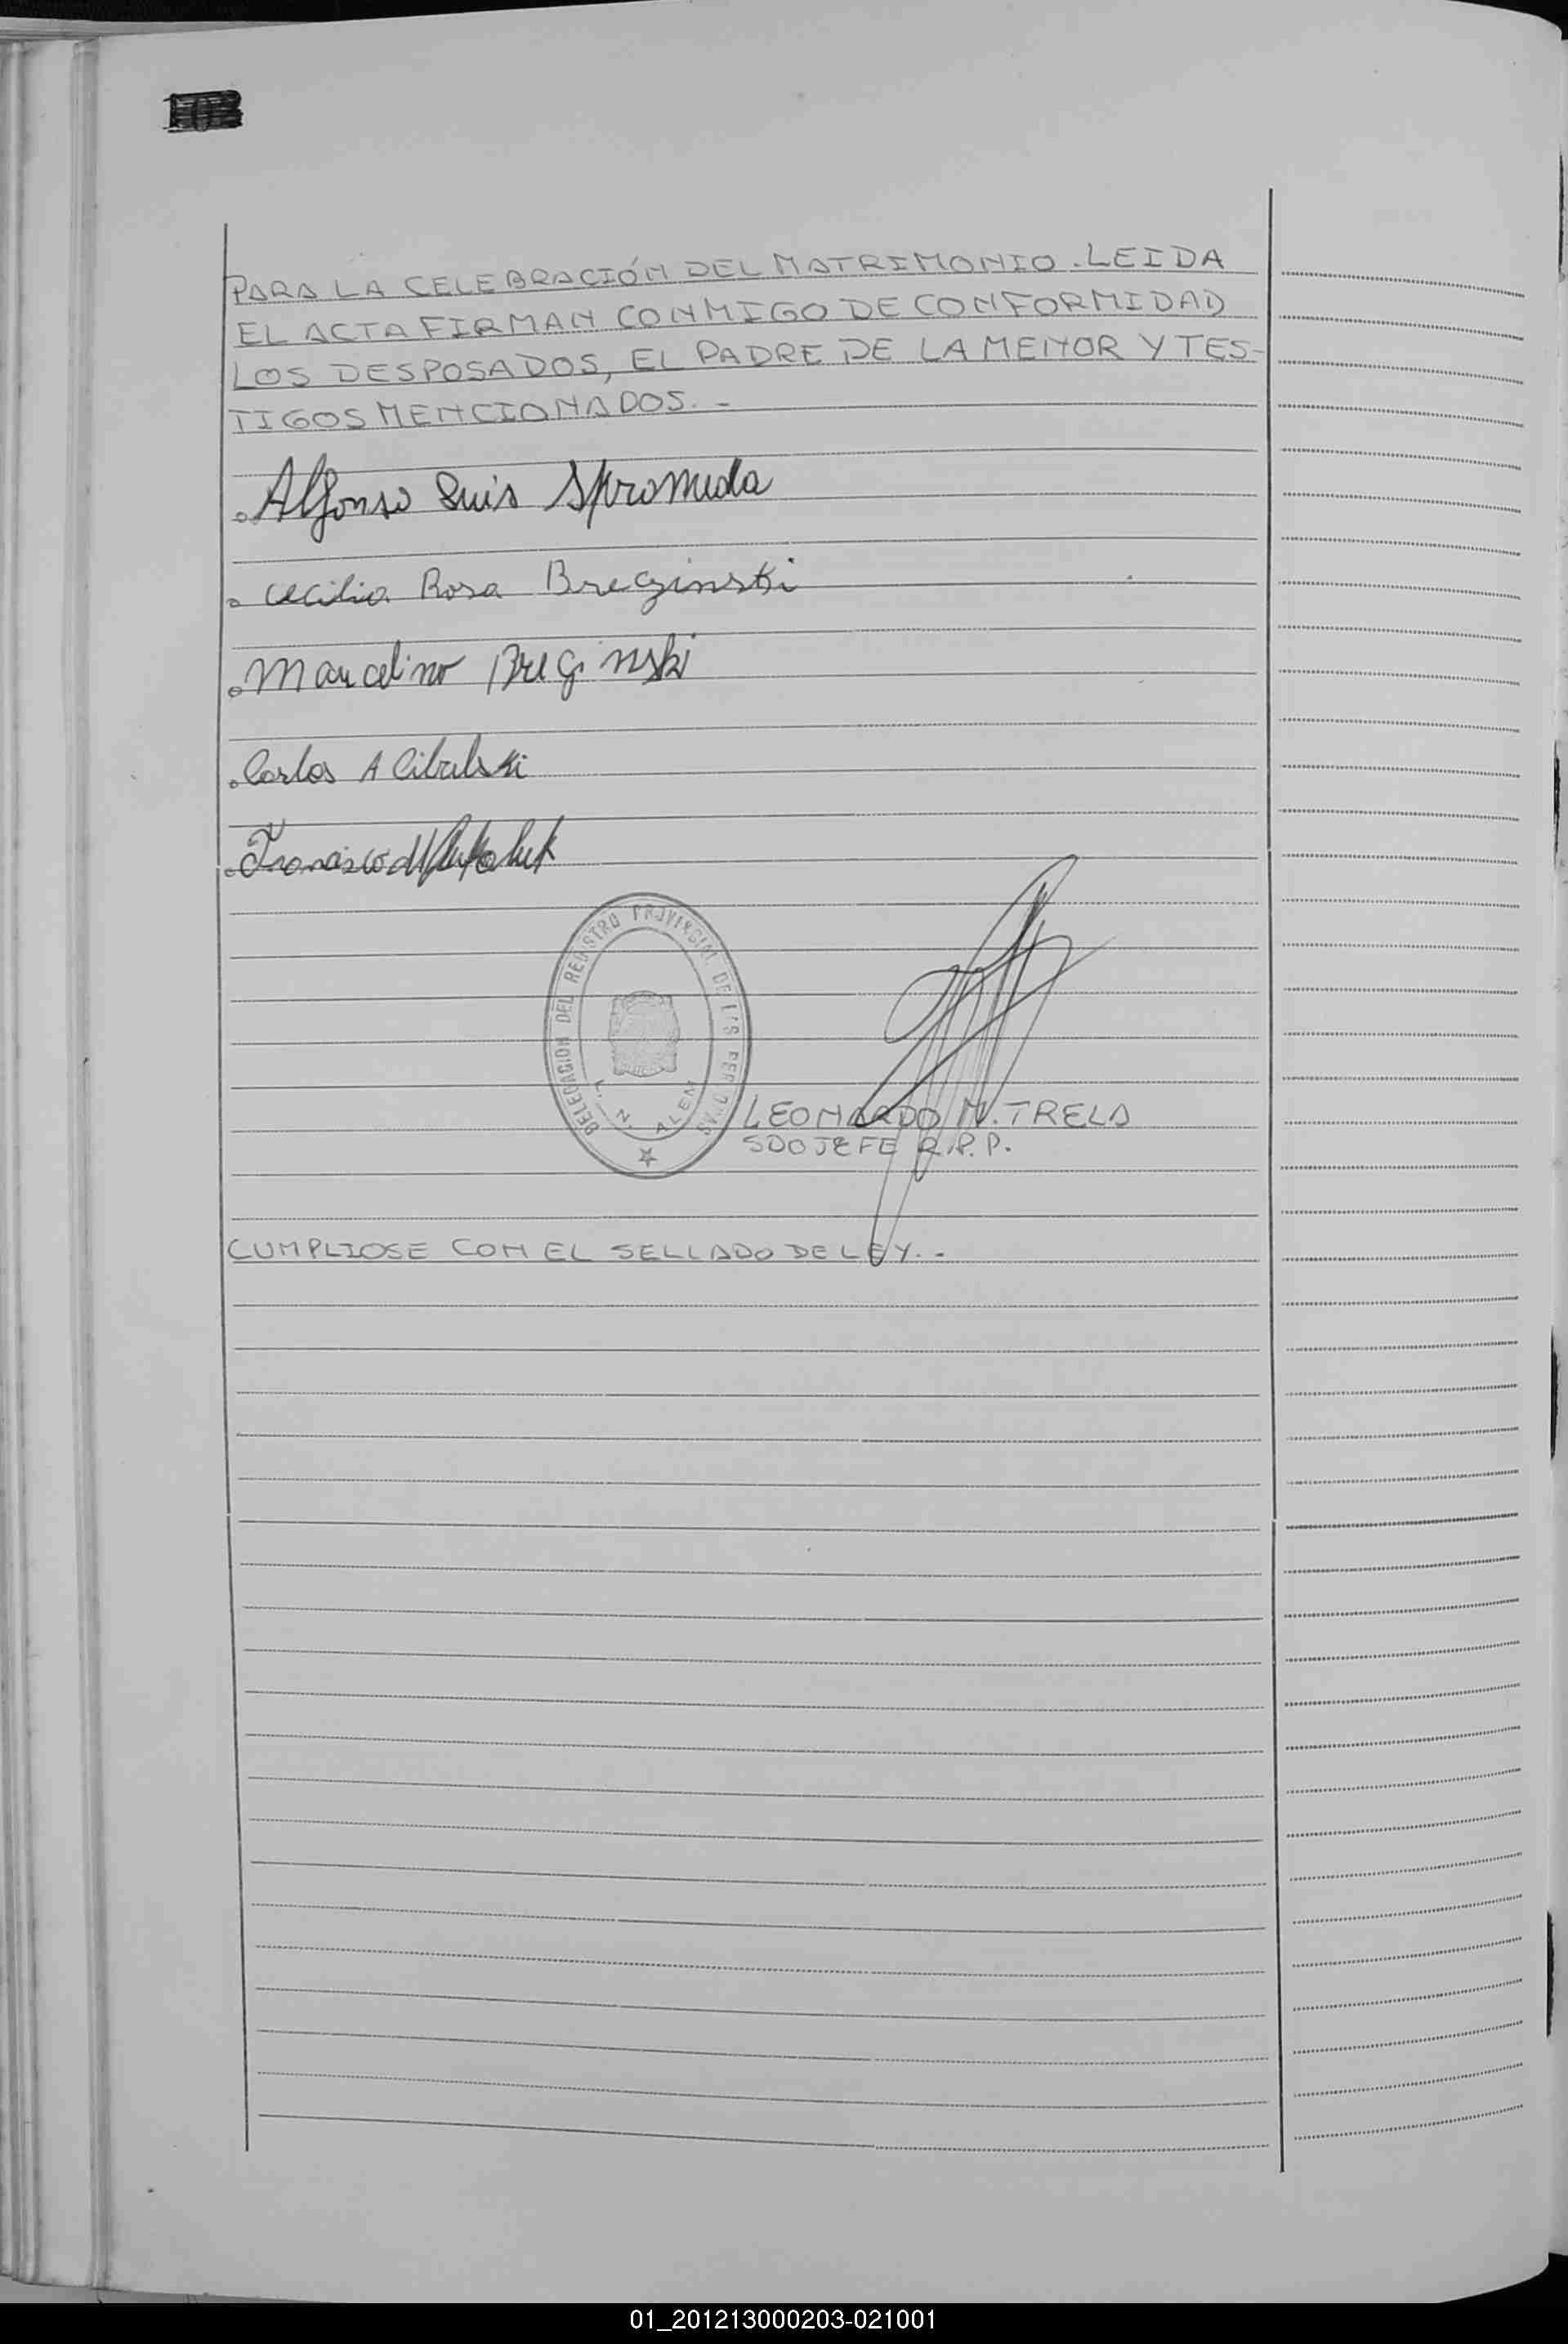 PARA LA CELEBRACIÓN DEL MATRIMONIO. LEIDA
EL ACTA FIRMAN CONMIGO DE CONFORMIDAD
LOS DESPOSADOS, EL PADRE DE LA MENOR Y TES-
TIGOS MENCIONADOS. -
Alfonso Luis
Cecilia Rosa Breginski
Marcelino Breginski
Carlos A Cibulski
Francisco
DELEGACION DEL REGISTRO PROVINCIAL DE LAS PERSONAS
L. N. ALEM
LEONARDO N. TRELA
SDO JEFE R.P.P.
CUMPLIOSE CON EL SELLADO DE LEY. -
01_201213000203-021001